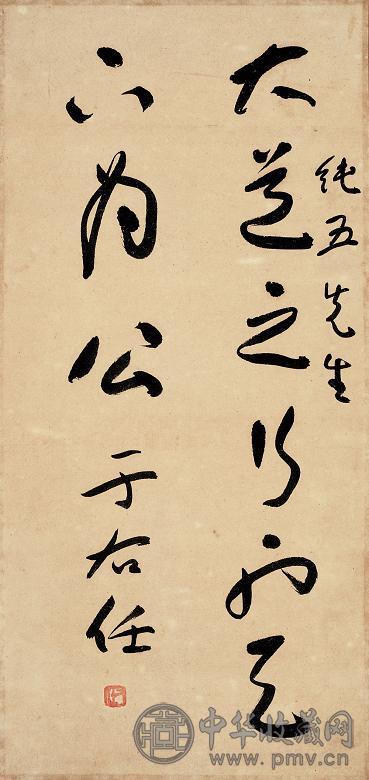 純五先生
大道之行也天
下為公
于右任
中华收藏网
www.pmv.cn